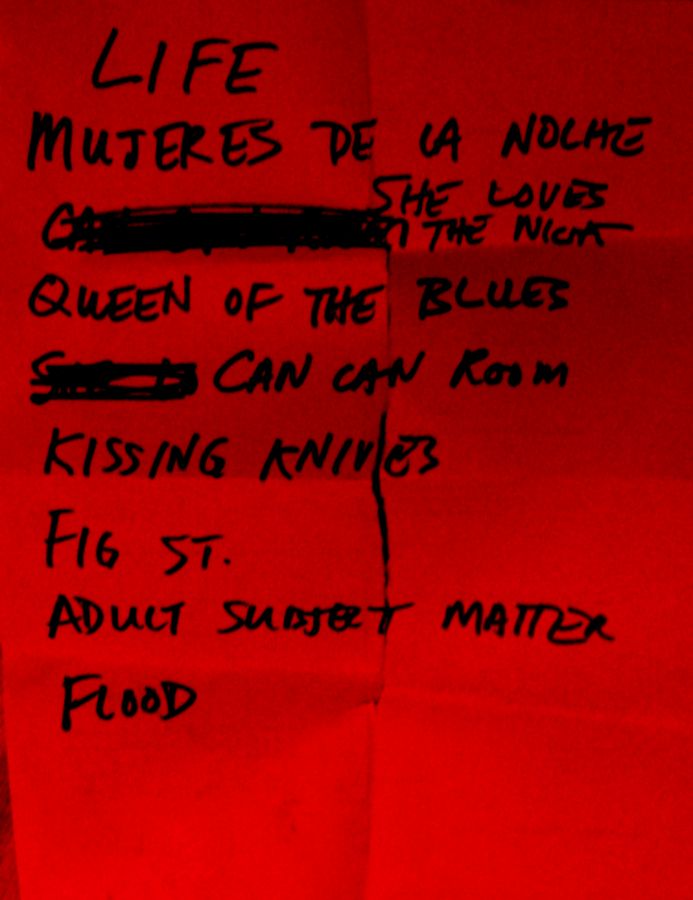 LIFE
MUJERES DE LA NOCHE
SHE LOVES
THE NIGHT
QUEEN OF THE BLUES
CAN CAN ROOM
KISSING KNIVES
FIG ST.
ADULT SUBJECT MATTER
FLOOD